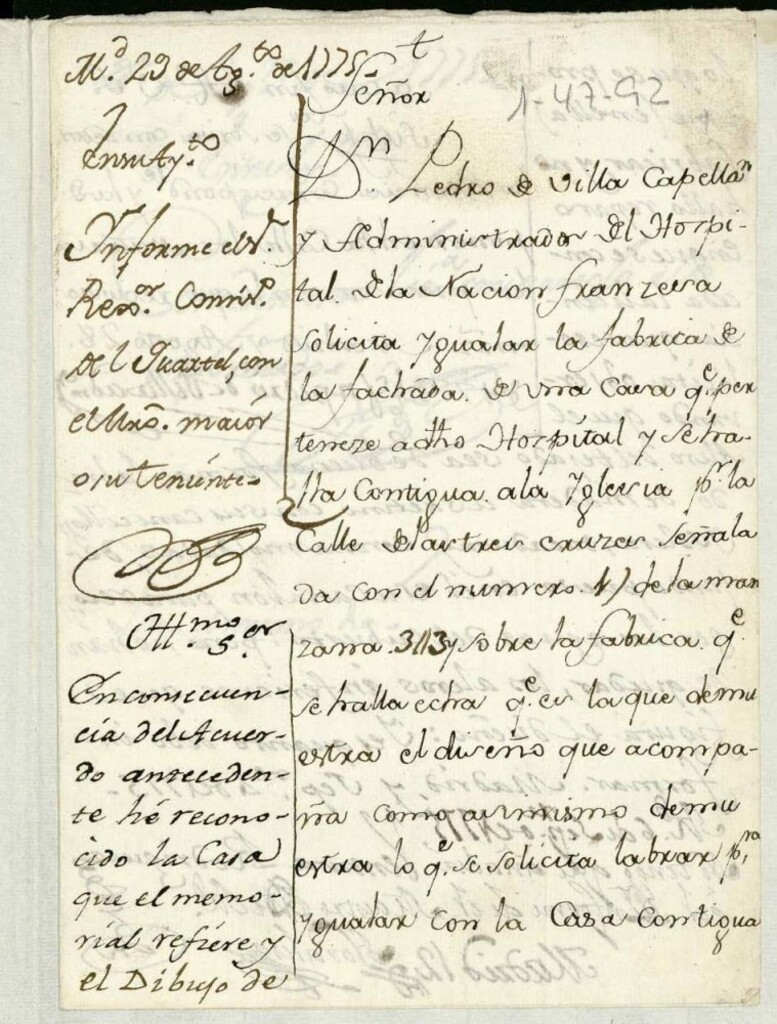 M.d 29 de Ag.to de 1775
En su Ay.to
Informe el S.r
Rex.or Comis.o
del Quartel, con
el Mro. maiór
o su teniénte
Ill.mo S.or
En consecuen-
cia del Acuer-
do anteceden-
te hé recono-
cido la Casa
que el memo-
rial refiére y
el Dibujo de
Señor
1-47-92
Dn. Pedro de Villa Capellan
y Administrador del Hospi-
tal de la Nacion franzesa
solicita Ygualar la fabrica de
la fachada de una Casa q.e per
teneze a dho Hospital y se ha-
lla Contigua a la Yglesia p.r la
Calle de las tres cruzes señala
da con el numero 17 de la man
zana 343 y sobre la fabrica q.e
se halla echa q.e es la que demu
estra el diseño que acompa-
ña como asimismo demu
estra lo q.e se solicita labrar p.ra
Ygualar con la Casa Contigua